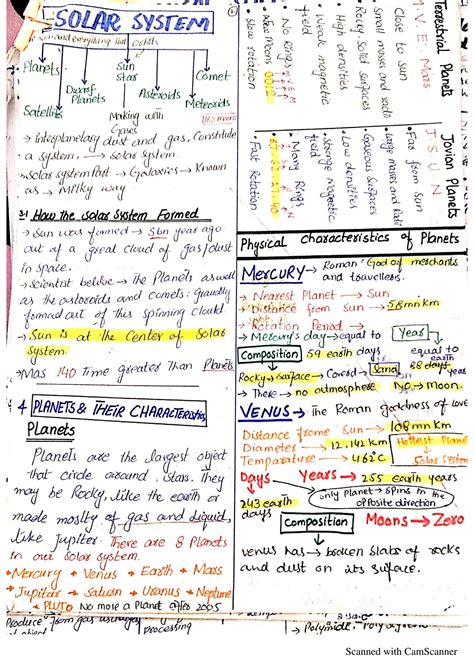 SOLAR SYSTEM
Sun and everything that orbits
Planets
Sun
Star
Comet
Dwarf
Planets
Asteroids
Satellites
Meteorids
Making with
Gases
→ interplanetary dust and gas, Constitute
a system. → solar system.
→ solar system Part → Galaxies → Known
as → milky way
How the solar System Formed
→ Sun was formed → 5bn year ago
out of a great cloud of gas/dust
in space.
→ scientist believe → the Planets as well
as the asteroids and comets: gravity
formed out of this spinning cloud
→ Sun is at the Center of Solar
System.
→ Mas 140 Time greater Than Planets
4 PLANETS & THEIR CHARACTERISTICS
Planets
Planets are the largest object
that circle around stars. They
may be Rocky, like the earth or
made mostly of gas and liquid,
like Jupiter. There are 8 Planets
in our solar system.
• Mercury • Venus • Earth • Mars
• Jupitar • Saturn • Uranus • Neptune
• PLUTO No more a Planet after 2005
Produce
processing
Terrestrial Planets
M.V.E. Mars
• Close to Sun
• Small masses and radii
• Rocky Solid surfaces
• High densities
• Weak magnetic
field
• No Rings
• Few Moons 0012
• Slow rotation
Jovian Planets
J S U N
• Far from Sun
• Large masses and Radii
• Gaseous Surfaces
• Low densities
• Stronge Magnetic
field
• Many Rings
• Fast Rotation
Physical Characteristics of Planets
MERCURY → Roman God of merchants
and travellers.
→ Nearest Planet → Sun
→ Distance from Sun → 58mn Km
→ Rotation Period →
→ Mercury's day → equal to
Year
59 earth days
equal to
88 days earth
Composition
Rocky → surface → Coverd → Sand
→ There → no atmosphere No → moon.
VENUS → The Roman goddness of love
Distance frome Sun → 108mn KM
Diameter → 12,142 KM
Hottest Planet
Solar System
Temparature → 462°C
Days
Years → 255 earth years
243 earth
days
only Planet → spins in the
opposite direction
Composition
Moons → Zero
venus has → broken slabs of rocks
and dust on its surface.
Scanned with CamScanner